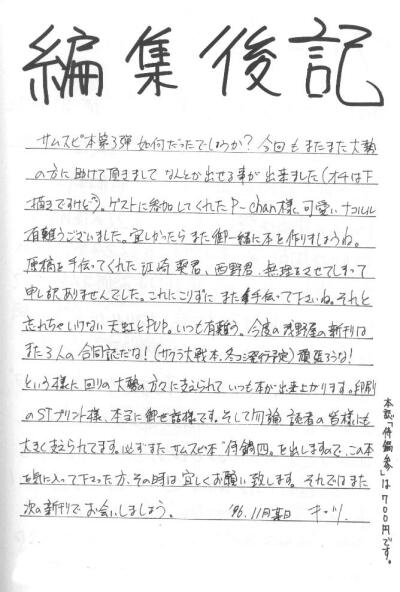 編集後記
サムスピ本第3弾 如何だったでしょうか？今回もまたまた大勢
の方に助けて頂きまして なんとか出せる事が出来ました（オチは下
描きですけど）。ゲストに参加してくれたP-chan様、可愛いナコルル
有難うございました。宜しかったら また御一緒に本を作りましょうね。
原稿を手伝ってくれた江崎 君、西野君、無理をさせてしまって
申し訳ありませんでした。これにこりずに また手伝って下さいね。それと
忘れちゃいけない 天虹とPUP。いつも有難う。今度の浅野屋の新刊は
また3人の合同記だな！（サクラ大戦本、冬コミ発行予定）頑張ろうな！
という様に 回りの大勢の方々に支えられて いつも本が出来上がります。印刷
のSTプリント様、本当に御世話様です。そして勿論 読者の皆様にも
大きく支えられてます。必ずまた サムスピ本“侍鍋四”を出しますので、この本
を気に入って下さった方、その時は宜しくお願い致します。それではまた
次の新刊で お会いしましょう。 '96.11月某日 キッツ.
本誌「侍鍋参」は700円です。